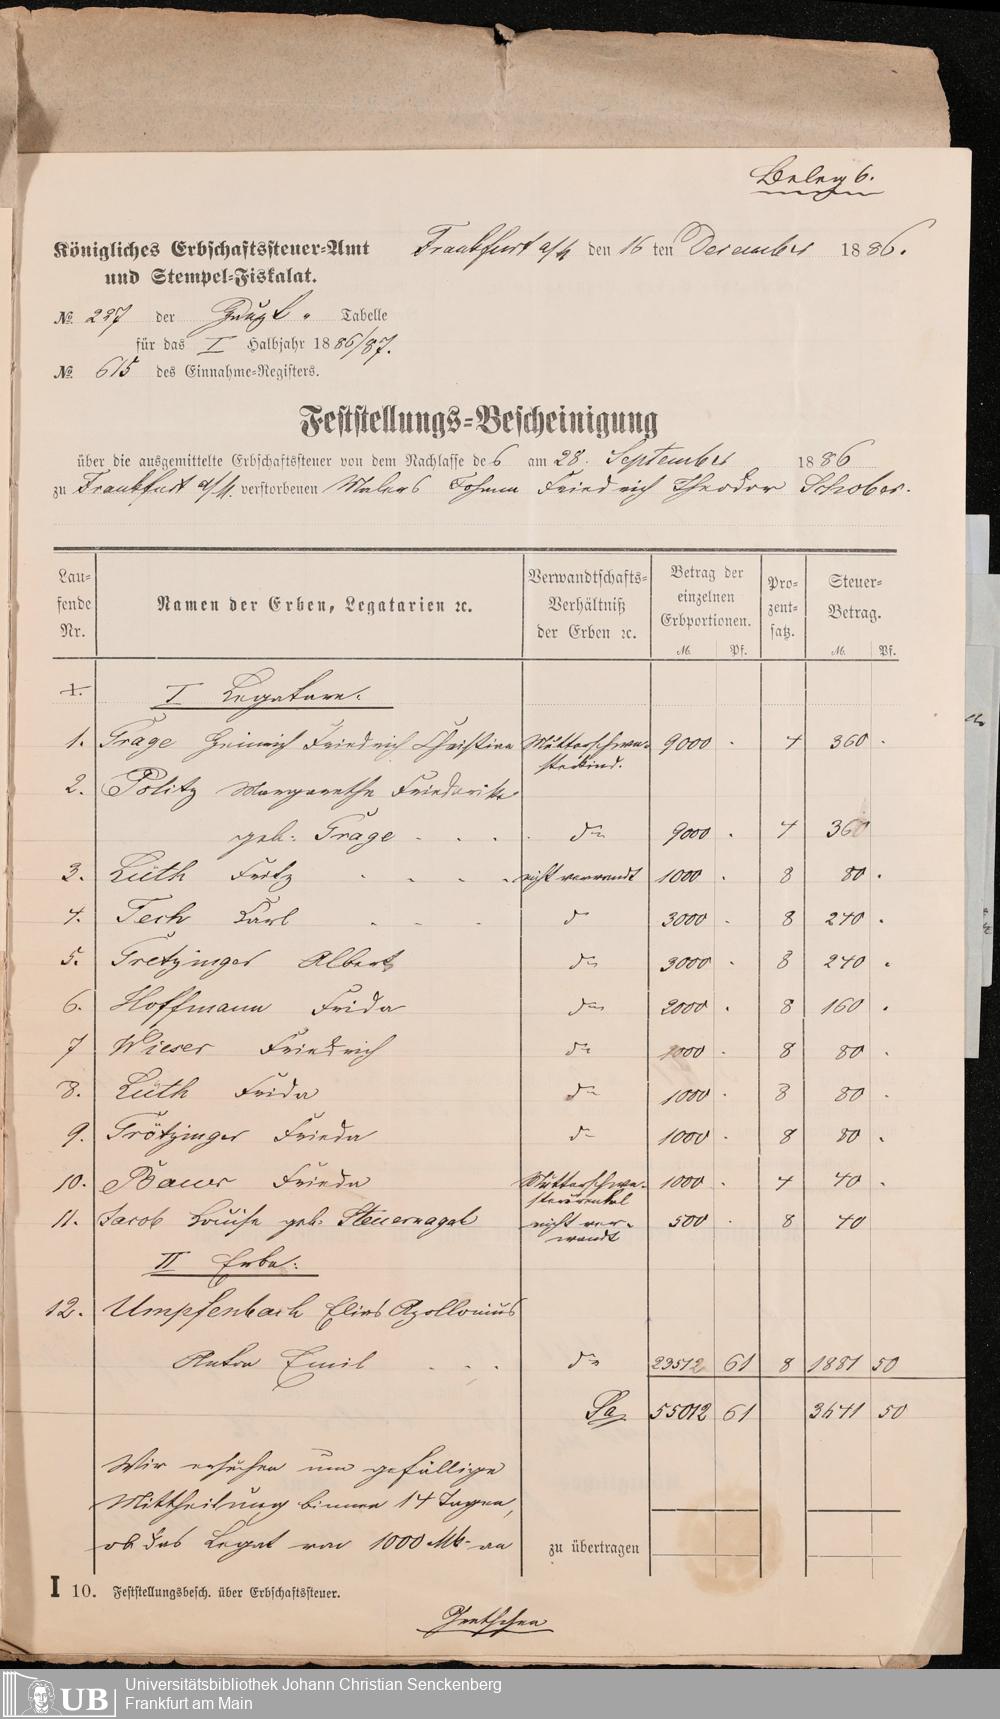 Beleg 6.
Königliches Erbschaftssteuer-Amt
und Stempel-Fiskalat.
Frankfurt a/M den 16 ten December 1886.
№ 227 der Haupt " Tabelle
für das I Halbjahr 1886/87.
№ 615 des Einnahme-Registers.
Feststellungs-Bescheinigung
über die ausgemittelte Erbschaftssteuer von dem Nachlasse des am 28. September 1886
zu Frankfurt a/M. verstorbenen Malers Johann Friedrich Theodor Schober.
Lau-
fende
Nr.
Namen der Erben, Legatarien ꝛc.
Verwandtschafts-
Verhältniß
der Erben ꝛc.
Betrag der
einzelnen
Erbportionen.
M. Pf.
Pro-
zent-
satz.
Steuer-
Betrag.
M. Pf.
1. I Legatare:
1. Trage Heinrich Friedrich Christian Mutterschwe-
sterkind. 9000 . 4 360 .
2. Politz Margarethe Friederike
geb: Trage . . . . do 9000 . 4 360
3. Lüth Fritz . . . . nicht verwandt 1000 . 8 80 .
4. Tech Karl . . . do 3000 . 8 240 .
5. Tretzinger Albert do 3000 . 8 240 .
6. Hoffmann Frida do 2000 . 8 160 .
7 Wieser Friedrich do 1000 . 8 80 .
8. Lüth Frida do 1000 . 8 80 .
9. Trötzinger Frieda do 1000 . 8 80 .
10. Bauer Frieda Mutterschwe-
sterurenkel 1000 . 4 40 .
11. Jacob Louise geb: Steuernagel nicht ver-
wandt 500 . 8 40
II Erbe:
12. Umpfenbach Elias Apollonius
Anton Emil . . . do 23512 61 8 1881 50
Sa 55012 61 3641 50
Wir ersuchen um gefällige
Mittheilung binnen 14 Tagen,
ob das Legat von 1000 Mk. an
zu übertragen
I 10. Feststellungsbesch. über Erbschaftssteuer.
Gretchen
UB
Universitätsbibliothek Johann Christian Senckenberg
Frankfurt am Main